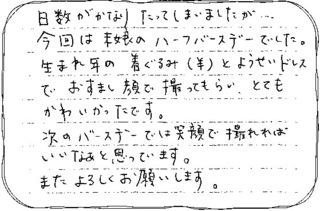 日数がかなりたってしまいましたが…
今回は末娘のハーフバースデーでした。
生まれ年の着ぐるみ(羊)とようせいドレス
で、おすまし顔で撮ってもらい、とても
かわいかったです。
次のバースデーでは笑顔で撮れれば
いいなぁと思っています。
またよろしくお願いします。